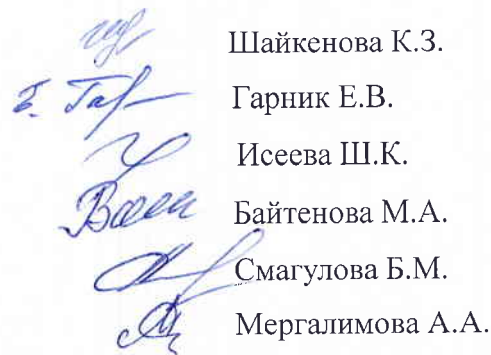 Шайкенова К.З.
Гарник Е.В.
Исеева Ш.К.
Байтенова М.А.
Смагулова Б.М.
Мергалимова А.А.